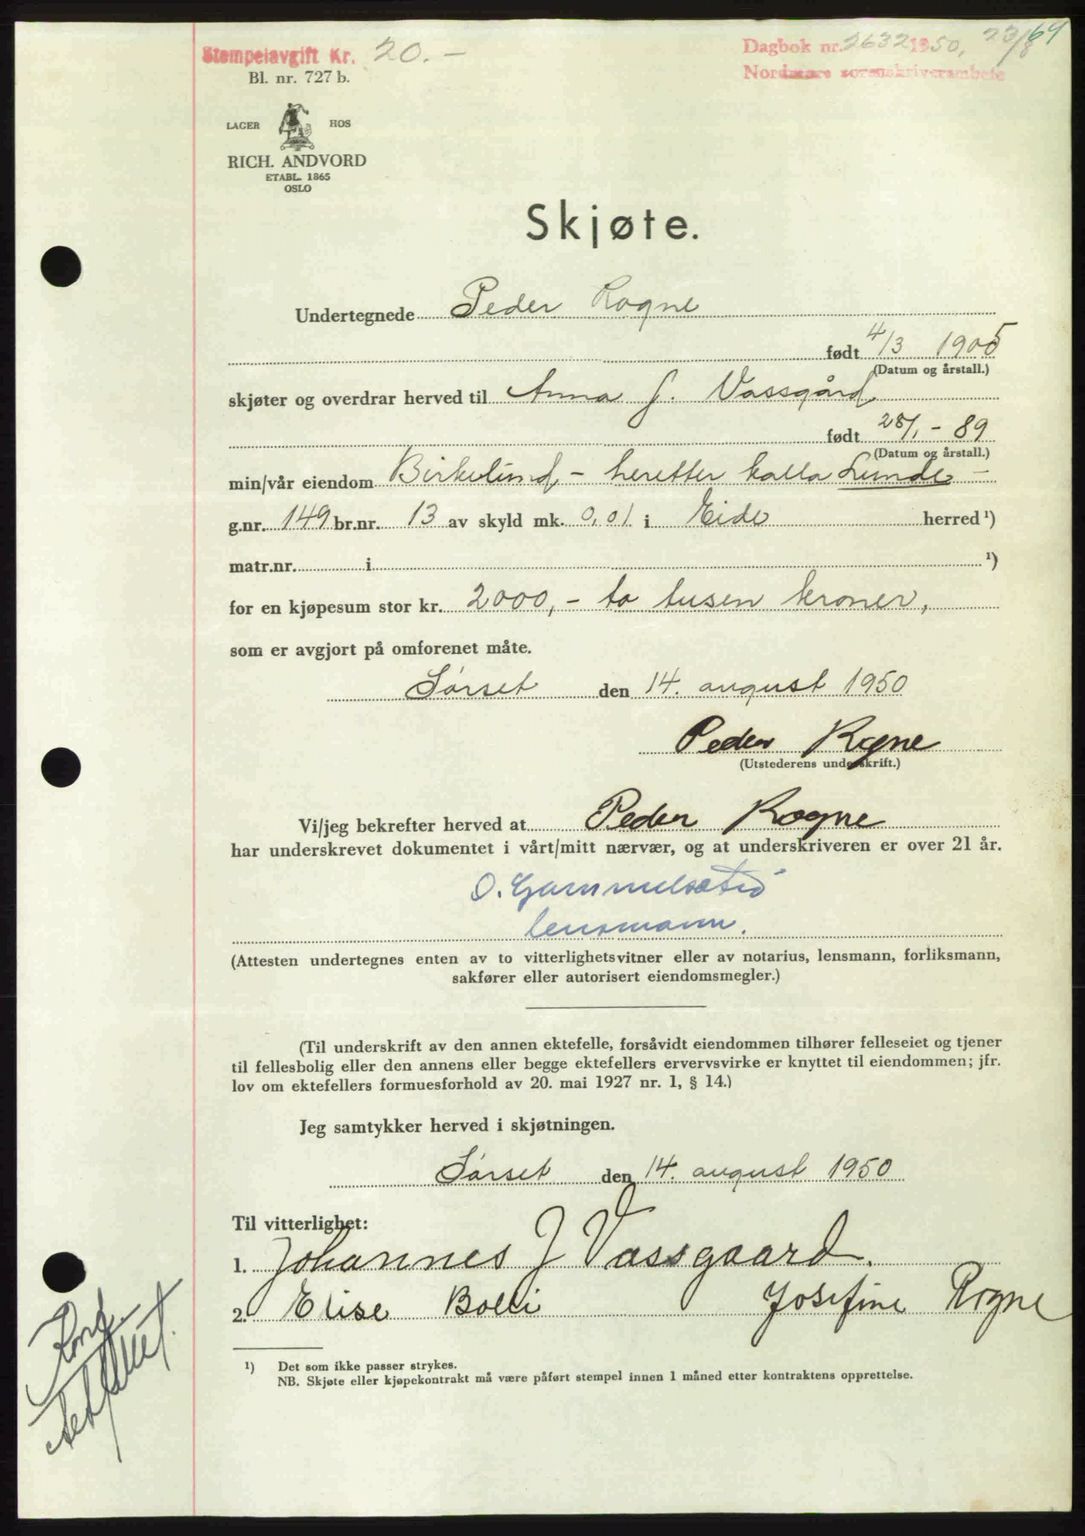 Stempelavgift Kr. 20.-
Bl. nr. 727 b.
Dagbok nr. 2632 1950, 23/8
64
Nordmøre sorenskriverembete
LAGER HOS
RICH. ANDVORD
ETABL. 1865
OSLO
Skjøte.
Undertegnede Peder Rogne
født 4/3 1905
(Datum og årstall.)
skjøter og overdrar herved til Anna J. Vassgård
født 28/1 - 89
(Datum og årstall.)
min/vår eiendom Birkelund - heretter kalla Lunde -
g.nr. 149 br.nr. 13 av skyld mk. 0,01 i Eide herred ¹)
matr.nr. i ¹)
for en kjøpesum stor kr. 2000,- to tusen kroner,
som er avgjort på omforenet måte.
Sørset den 14. august 1950
Peder Rogne
(Utstederens underskrift.)
Vi/jeg bekrefter herved at Peder Rogne
har underskrevet dokumentet i vårt/mitt nærvær, og at underskriveren er over 21 år.
O. Gammelsæter
lensmann.
(Attesten undertegnes enten av to vitterlighetsvitner eller av notarius, lensmann, forliksmann,
sakfører eller autorisert eiendomsmegler.)
(Til underskrift av den annen ektefelle, forsåvidt eiendommen tilhører felleseiet og tjener
til fellesbolig eller den annens eller begge ektefellers ervervsvirke er knyttet til eiendommen; jfr.
lov om ektefellers formuesforhold av 20. mai 1927 nr. 1, § 14.)
Jeg samtykker herved i skjøtningen.
Sørset den 14. august 1950
Til vitterlighet:
1. Johannes J Vassgaard.
2. Elise Bolli Josefine Rogne
¹) Det som ikke passer strykes.
NB. Skjøte eller kjøpekontrakt må være påført stempel innen 1 måned etter kontraktens opprettelse.